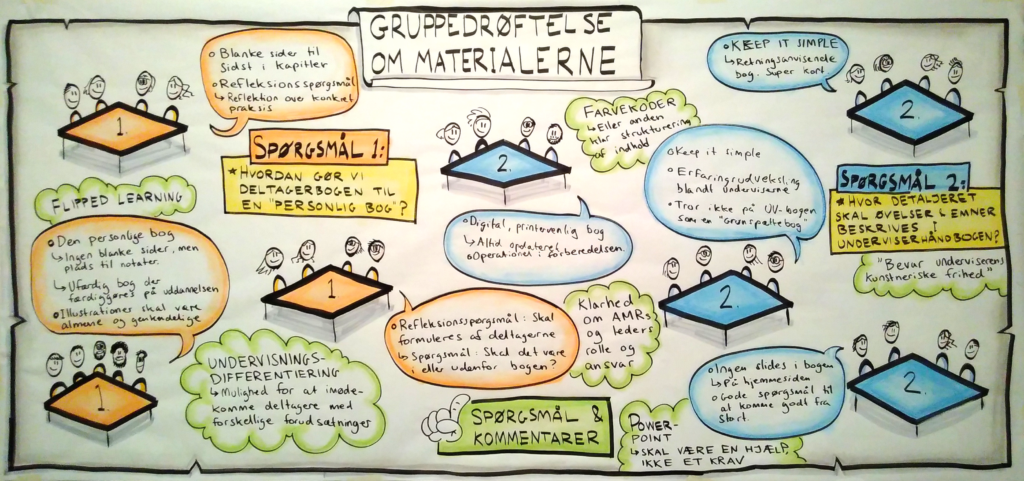 GRUPPEDRØFTELSE
OM MATERIALERNE
Blanke sider til
sidst i kapitler
Refleksionsspørgsmål
↳ Reflektion over konkret
praksis
1.
SPØRGSMÅL 1:
* HVORDAN GØR VI
DELTAGERBOGEN TIL
EN "PERSONLIG BOG"?
FLIPPED LEARNING
Den personlige bog
↳ Ingen blanke sider, men
plads til notater.
↳ Ufærdig bog der
færdiggøres på uddannelsen
Illustrationer skal være
almene og genkendelige
1.
1
Refleksionsspørgsmål: Skal
formuleres af deltagerne
↳ Spørgsmål: Skal det være
i eller udenfor bogen?
UNDERVISNINGS-
DIFFERENTIERING
↳ Mulighed for at imøde-
komme deltagere med
forskellige forudsætninger
SPØRGSMÅL &
KOMMENTARER
2.
FARVEKODER
↳ Eller anden
klar strukturering
af indhold
Digital, printvenlig bog
↳ Altid opdateret
Operationel i forberedelsen
KEEP IT SIMPLE
↳ Retningsanvisende
bog. Super kort
2.
Keep it simple
Erfaringsudveksling
blandt underviserne
Tror ikke på UV-bogen
som en "Grunspættebog"
2.
SPØRGSMÅL 2:
* HVOR DETALJERET
SKAL ØVELSER & EMNER
BESKRIVES I
UNDERVISERHÅNDBOGEN?
"Bevar underviserens
kunstneriske frihed"
Klarhed
om AMRs
og leders
rolle og
ansvar
Ingen slides i bogen
↳ på hjemmesiden
Gode spørgsmål til
at komme godt fra
start.
2.
POWER-
POINT
↳ SKAL VÆRE EN HJÆLP,
IKKE ET KRAV